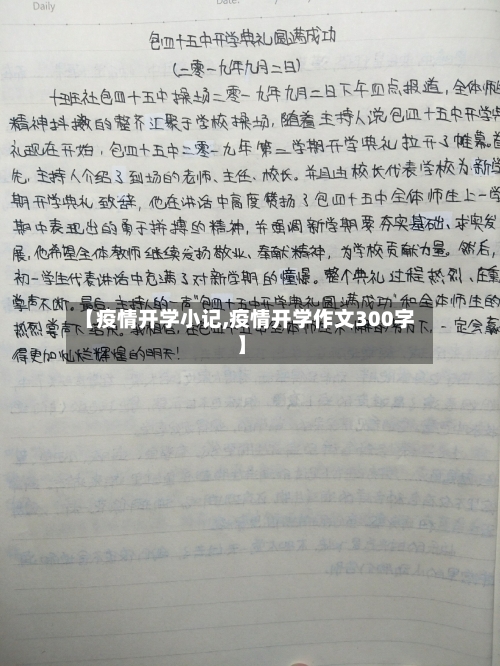 Daily
Date:
包四十五中开学典礼圆满成功
(二零一九年九月二日)
十班社包四十五中操场二零一九年九月二日下午四点报道,全体师
精神抖擞的整齐汇聚于学校操场,随着主持人说包四十五中开学典
礼现在开始,包四十五中二零一九年第二学期开学典礼拉开了帷幕。首
先,主持人介绍了到场的老师、主任、校长。并且由校长代表学校为新学
期开学典礼致辞,他在讲话中高度赞扬了包四十五中全体师生上一学
期中表现出的勇于拼搏的精神,并强调新学期要夯实基础、求实发
展,他希望全体教师继续发扬敬业、奉献精神,为学校贡献力量。然后,
初一学生代表讲话中充满了对新学期的憧憬。整个典礼过程热烈、庄重
掌声不断。最后,主持人的一声“包四十五中开学典礼圆满成功”和全体师生的
热烈掌声下
一定会赢
得更加灿烂辉煌的明天!
【疫情开学小记,疫情开学作文300字
】